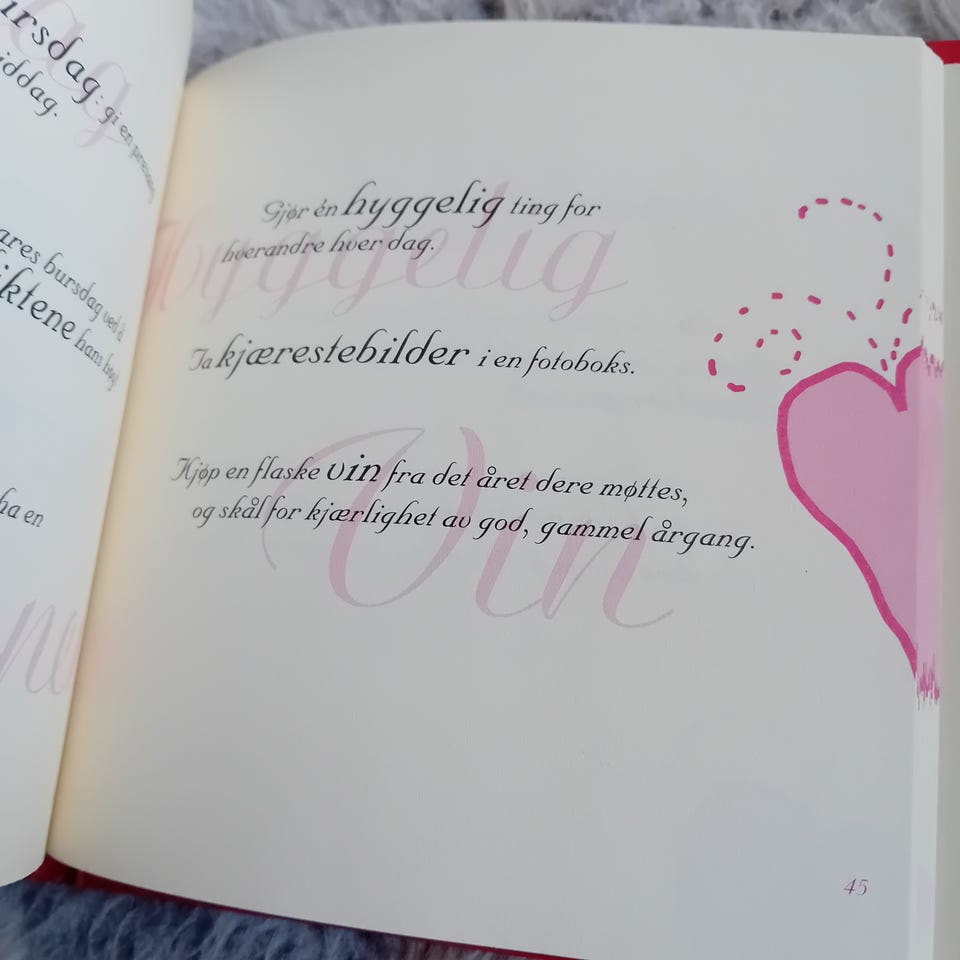 ursdag: gi en presang
iddag.
ares bursdag ved å
iktene hans høyt
ha en
Gjør én hyggelig ting for
hverandre hver dag.
Hyggelig
Ta kjærestebilder i en fotoboks.
Kjøp en flaske vin fra det året dere møttes,
og skål for kjærlighet av god, gammel årgang.
Vin
45